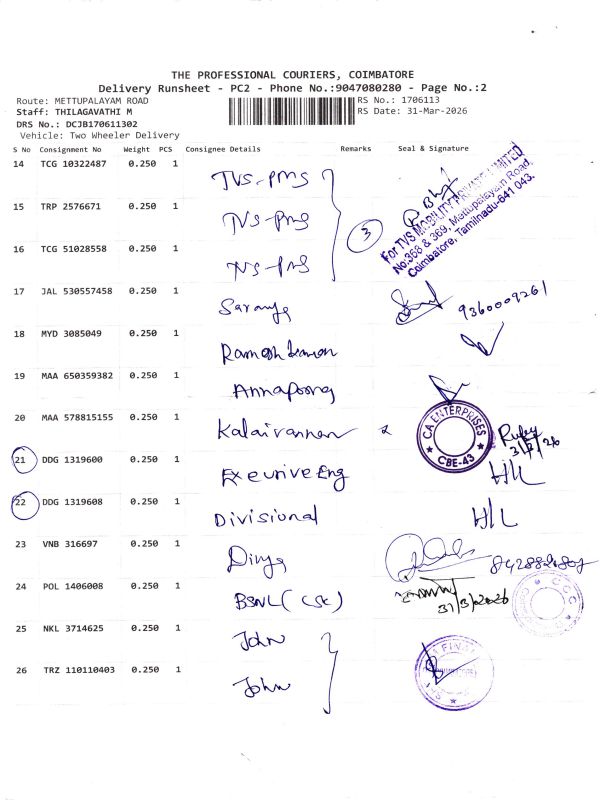 THE PROFESSIONAL COURIERS, COIMBATORE
Delivery Runsheet - PC2 - Phone No.:9047080280 - Page No.:2
Route: METTUPALAYAM ROAD RS No.: 1706113
Staff: THILAGAVATHI M RS Date: 31-Mar-2026
DRS No.: DCJB170611302
Vehicle: Two Wheeler Delivery
S No Consignment No Weight PCS Consignee Details Remarks Seal & Signature
14 TCG 10322487 0.250 1 TVS-PMS
For TVS MOBILITY PRIVATE LIMITED
No.368 & 369, Mettupalayam Road,
Coimbatore, Tamilnadu-641 043.
15 TRP 2576671 0.250 1 TVS-PMS 3
16 TCG 51028558 0.250 1 TVS-PMS
17 JAL 530557458 0.250 1 Saranya 9360009261
18 MYD 3085049 0.250 1
19 MAA 650359382 0.250 1 Annapoorna
20 MAA 578815155 0.250 1 Kalaivannan CA ENTERPRISES CBE-43
21 DDG 1319600 0.250 1 Eng H/L
22 DDG 1319608 0.250 1 Divisional H/L
23 VNB 316697 0.250 1 Divya
24 POL 1406008 0.250 1 BSNL (CSC) 31/3/2026
25 NKL 3714625 0.250 1 John
26 TRZ 110110403 0.250 1 John